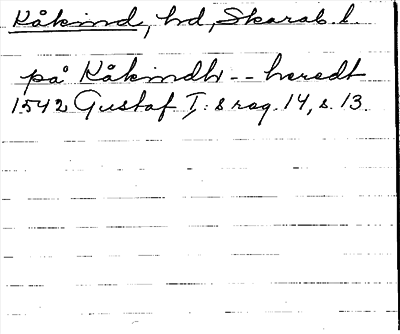 Kåkind, hd, Skarab. l.
på Kåkindh -- heredt
1542 Gustaf I:s reg. 14, s. 13.